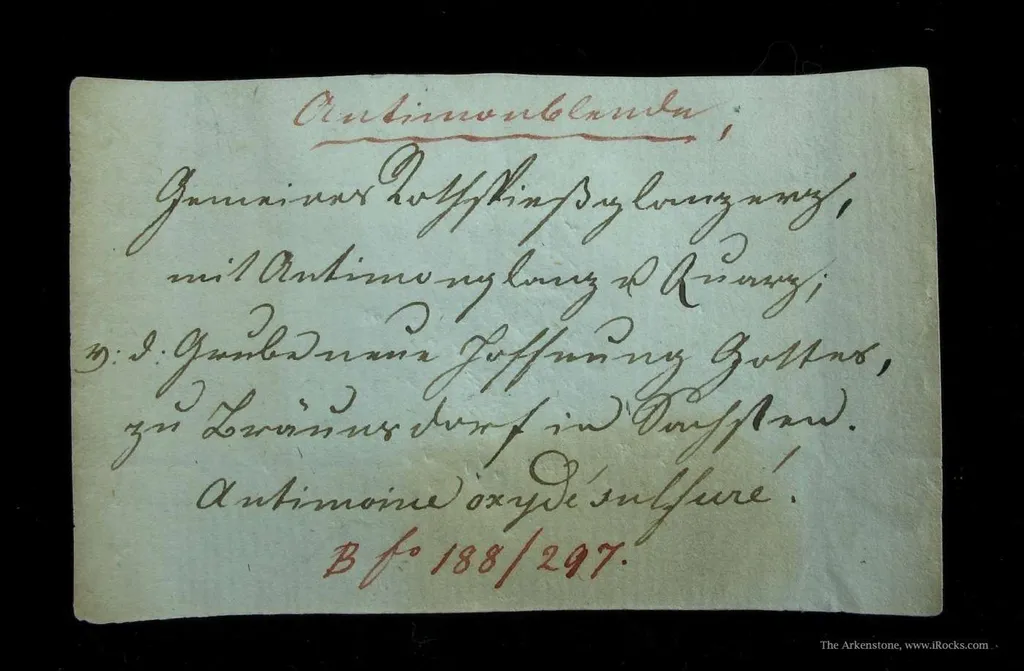 Antimonblende;
Gemeines Rothspießglanzerz,
mit Antimonglanz u Quarz;
v: d: Grube neue Hoffnung Gottes,
zu Bräunsdorf in Sachsen.
Antimoine oxydé sulfuré.
B fo 188/297.
The Arkenstone, www.iRocks.com